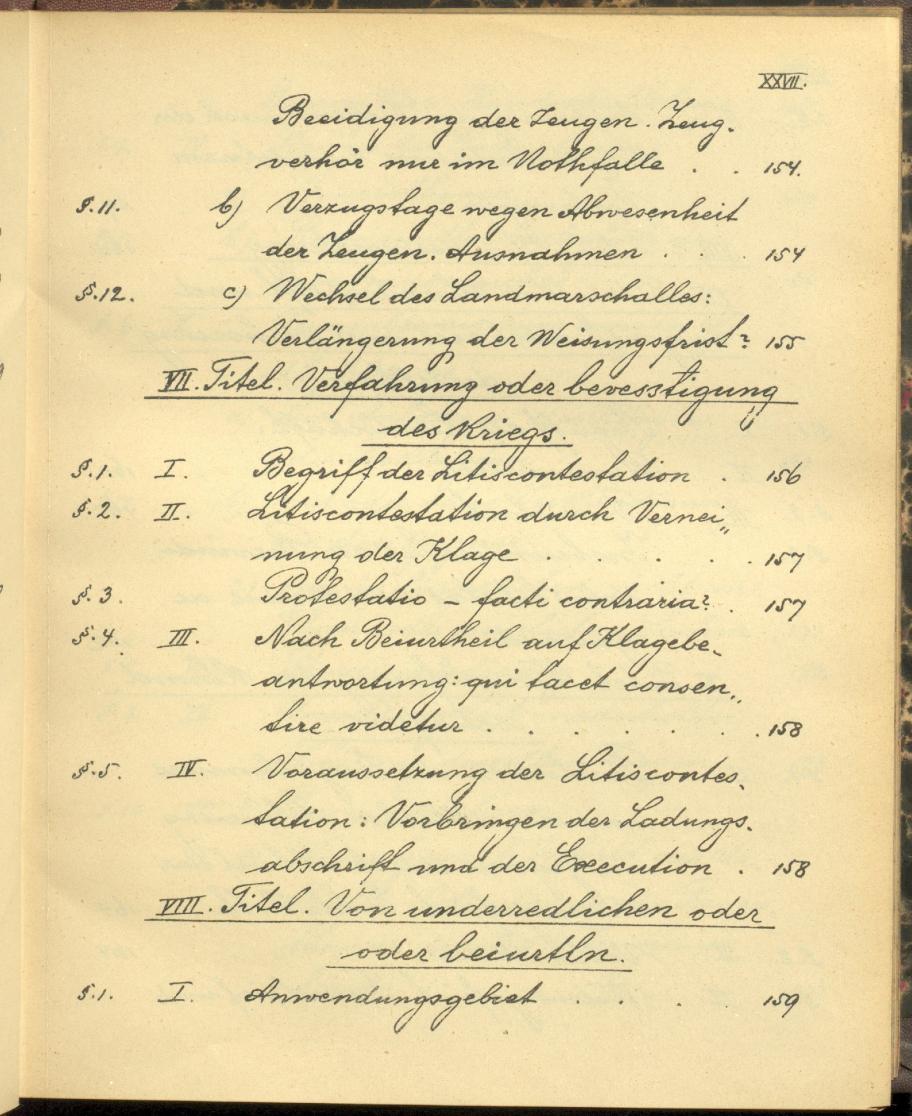 XXVII.
Beeidigung der Zeugen. Zeug-
verhör nur im Nothfalle . . 154.
§.11. b) Verzugstage wegen Abwesenheit
der Zeugen. Ausnahmen . . . 154
§.12. c) Wechsel des Landmarschalles:
Verlängerung der Weisungsfrist? 155
VII. Titel. Verfahrung oder bevesstigung
des Kriegs.
§.1. I. Begriff der Litiscontestation . 156
§.2. II. Litiscontestation durch Vernei„
nung der Klage . . . . . 157
§.3. Protestatio - facti contraria? . 157
§.4. III. Nach Beiurtheil auf Klagebe-
antwortung: qui tacet consen„
tire videtur . . . . . . . 158
§.5. IV. Voraussetzung der Litiscontes-
tation: Vorbringen der Ladungs-
abschrift und der Execution . 158
VIII. Titel. Von underredlichen oder
oder beiurtln.
§.1. I. Anwendungsgebiet . . . 159